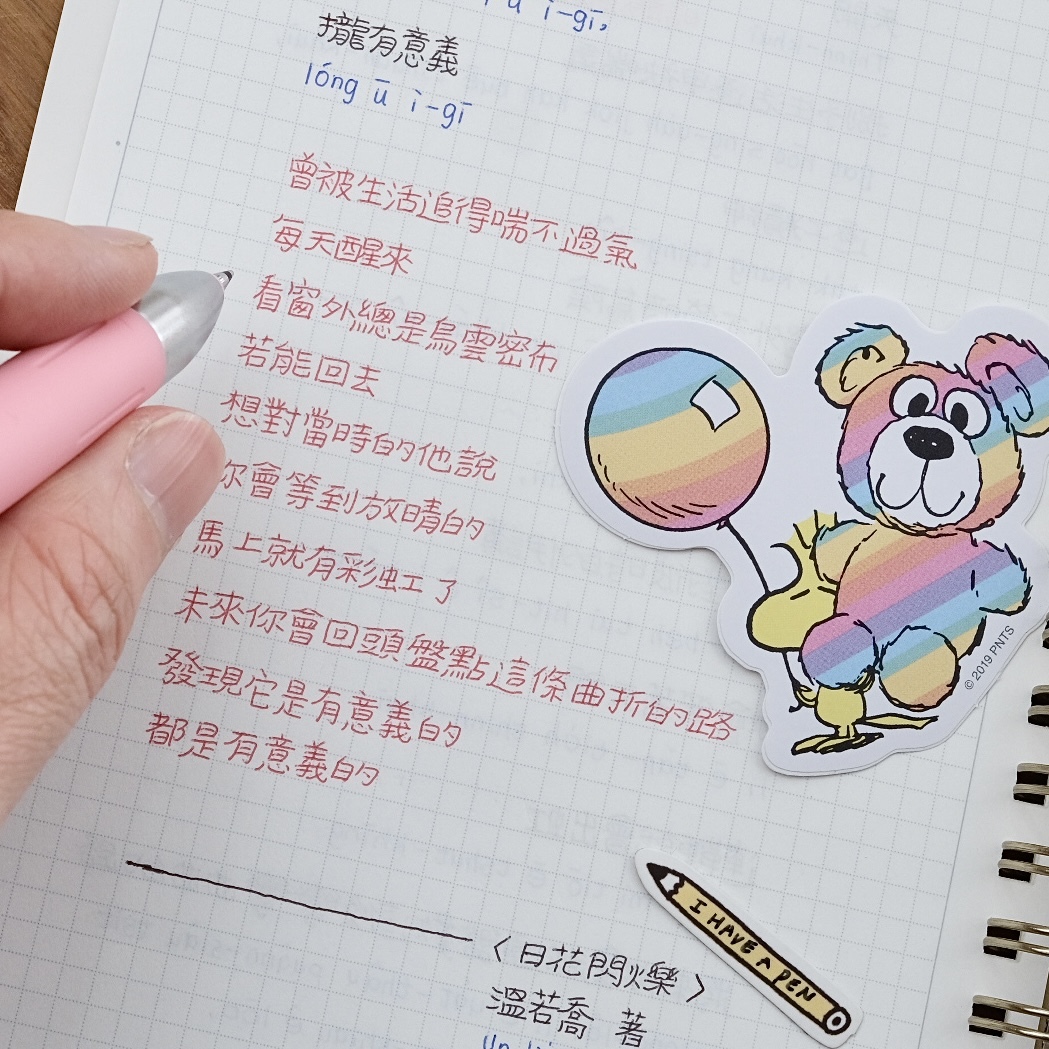 ì-gī,
攏有意義
lóng ū ì-gī
曾被生活追得喘不過氣
每天醒來
看窗外總是烏雲密布
若能回去
想對當時的他說
你會等到放晴的
馬上就有彩虹了
未來你會回頭盤點這條曲折的路
發現它是有意義的
都是有意義的
© 2019 PNTS
I HAVE A PEN
〈日花閃爍〉
溫若喬 著